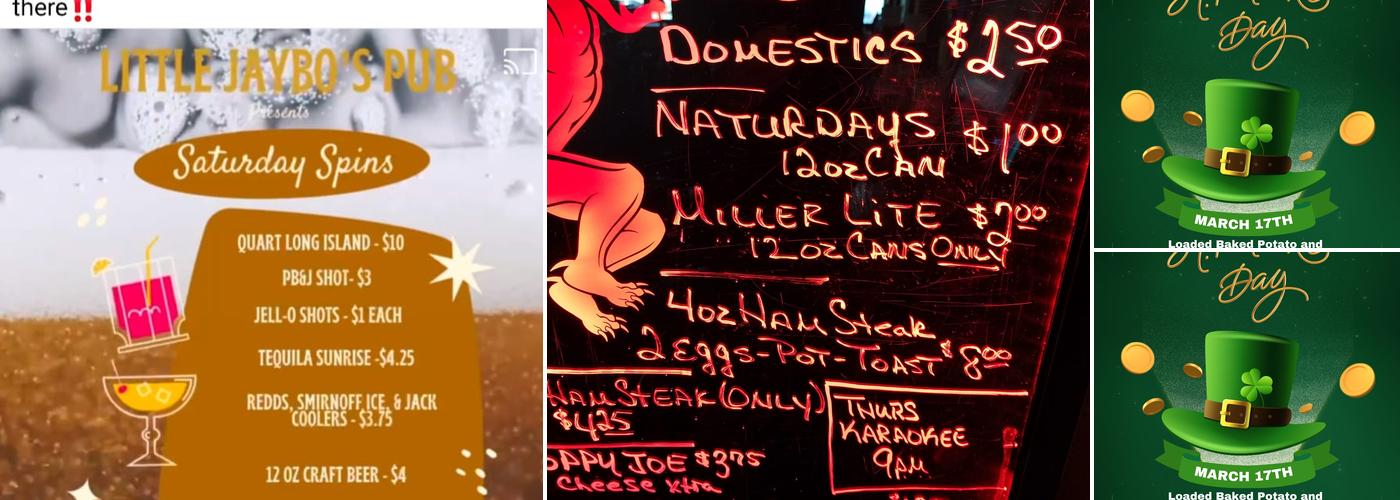 there‼️
LITTLE JAYBO'S PUB
Presents
Saturday Spins
QUART LONG ISLAND - $10
PB&J SHOT- $3
JELL-O SHOTS - $1 EACH
TEQUILA SUNRISE -$4.25
REDDS, SMIRNOFF ICE, & JACK
COOLERS - $3.75
12 OZ CRAFT BEER - $4
DOMESTICS $2.50
NATURDAYS $1.00
12oz CAN
MILLER LITE $2.00
12oz CANS ONLY
4oz HAM Steak
2 Eggs-POT-TOAST $8.00
HAM STEAK (ONLY)
$4.25
OPPY JOE $3.75
Cheese xtra
THURS
KARAOKEE
9PM
Day
MARCH 17TH
Loaded Baked Potato and
Day
MARCH 17TH
Loaded Baked Potato and